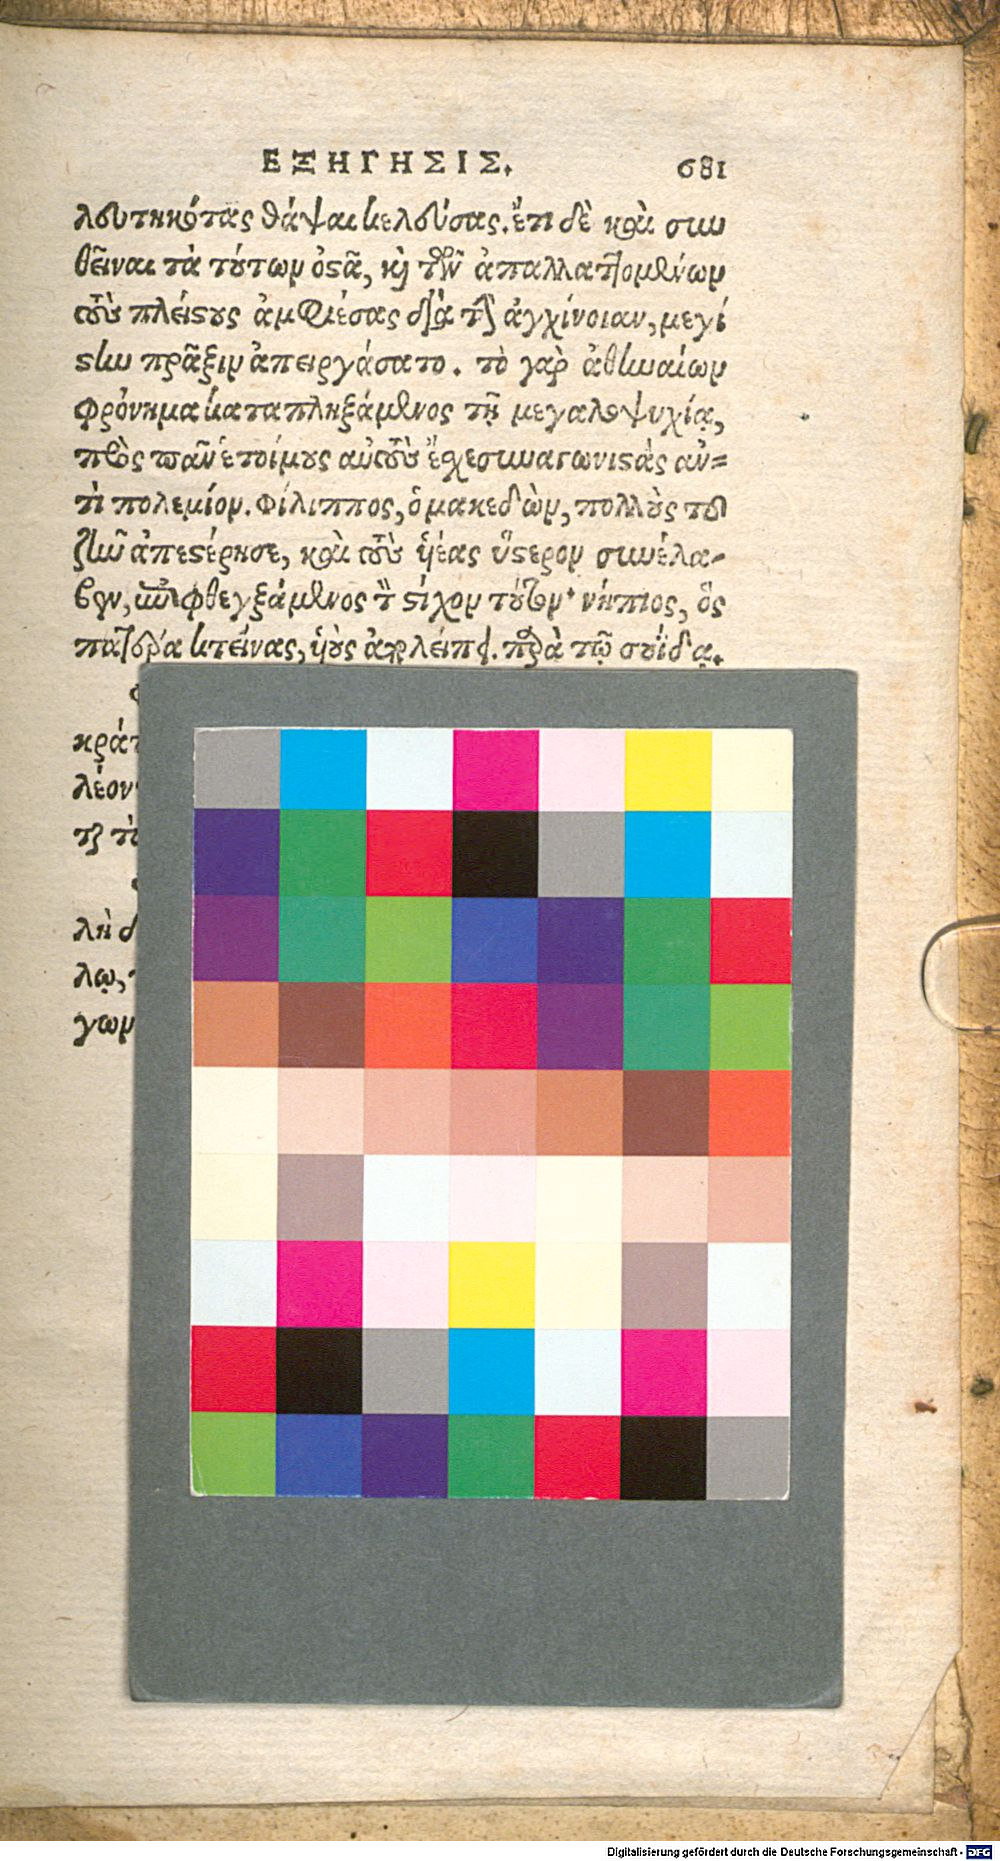 ΕΞΗΓΗΣΙΣ. 681
λευτηκότας θάψαι κελεύσας. ἔτι δὲ καὶ συν
θεῖναι τὰ τούτων ὀστᾶ, καὶ τῶν ἀπαλλαττομένων
τοὺς πλείστους ἀμφιέσας διὰ τὴν ἀγχίνοιαν, μεγί
στην πρᾶξιν ἀπειργάσατο. τὸ γὰρ ἀθηναίων
φρόνημα καταπληξάμενος τῇ μεγαλοψυχίᾳ,
πρὸς πᾶν ἑτοίμους αὐτοὺς ἔχε συναγωνιστὰς ἀν=
τὶ πολεμίον. Φίλιππος, ὁ μακεδὼν, πολλοὺς τοῦ
ζῆν ἀπεστέρησε, καὶ τοὺς ὑέας ὕστερον συνέλα-
βεν, ἐπιφθεγξάμενος τὸν στίχον τοῦτον· νήπιος, ὃς
πατέρα κτείνας, υἱοὺς καταλείποι. παρὰ τῷ σουίδᾳ.
κράτ
λέον
τῆς τὸ
λὴ δ
λῳ,
γων
Digitalisierung gefördert durch die Deutsche Forschungsgemeinschaft - DFG